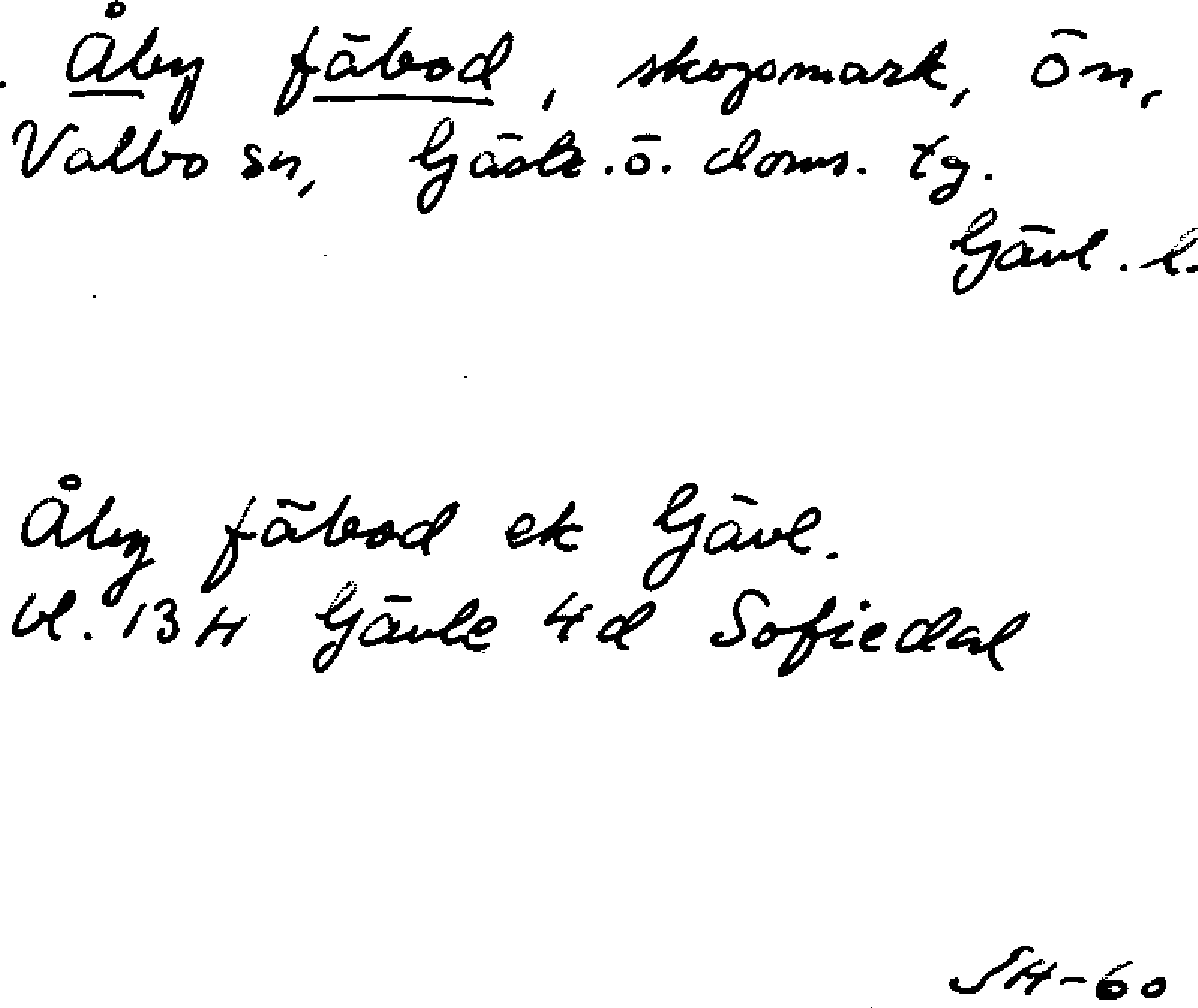 Åby fäbod, skogsmark, ön,
Valbo sn, Gästr.ö. doms. tg.
Gävl. l.
Åby fäbod ek Gävl.
bl. 13 H Gävle 4d Sofiedal
SH-60